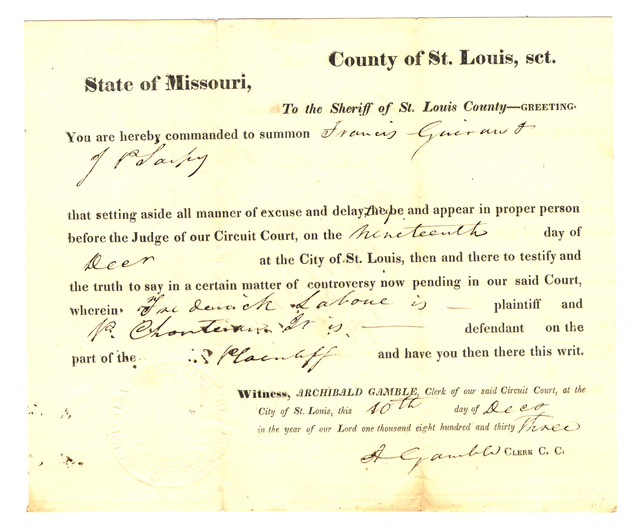 County of St. Louis, sct.
State of Missouri,
To the Sheriff of St. Louis County—GREETING.
You are hereby commanded to summon Francis Guirant &
J P Sarpy
that setting aside all manner of excuse and delay, they be and appear in proper person
before the Judge of our Circuit Court, on the nineteenth day of
Decr at the City of St. Louis, then and there to testify and
the truth to say in a certain matter of controversy now pending in our said Court,
wherein Frederick Laboue is — plaintiff and
P. Chouteau Jr is — defendant on the
part of the Plaintiff and have you then there this writ.
Witness, ARCHIBALD GAMBLE, Clerk of our said Circuit Court, at the
City of St. Louis, this 10th day of Decr
in the year of our Lord one thousand eight hundred and thirty Three
A Gamble CLERK C. C.